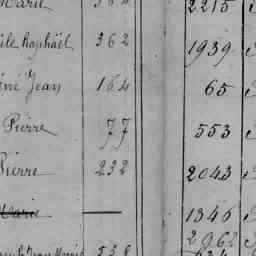 Marie 364 2215
ile Raphaël 362 1939
éné Jean 164 65
Pierre 77 553
Pierre 232 2043
Marie — 1346
2962
538